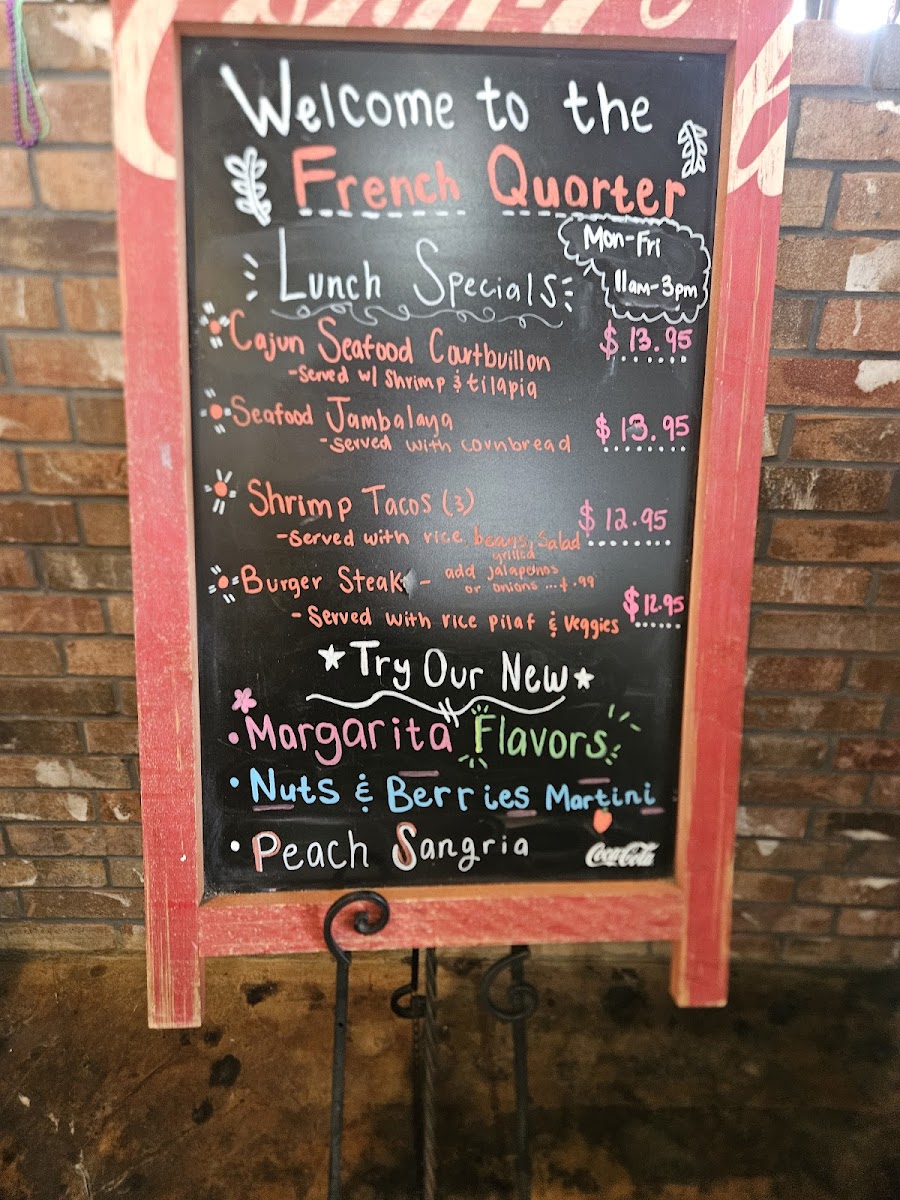 Welcome to the
French Quarter
Mon-Fri
11am-3pm
Lunch Specials
Cajun Seafood Courtbuillon $13.95
-Served w/ Shrimp & tilapia
Seafood Jambalaya $13.95
-served with cornbread
Shrimp Tacos (3) $12.95
-Served with rice, beans, Salad
Burger Steak - add grilled jalapenos
or onions ...$.99
$12.95
-Served with rice pilaf & veggies
Try Our New
• Margarita Flavors
• Nuts & Berries Martini
• Peach Sangria
Coca-Cola